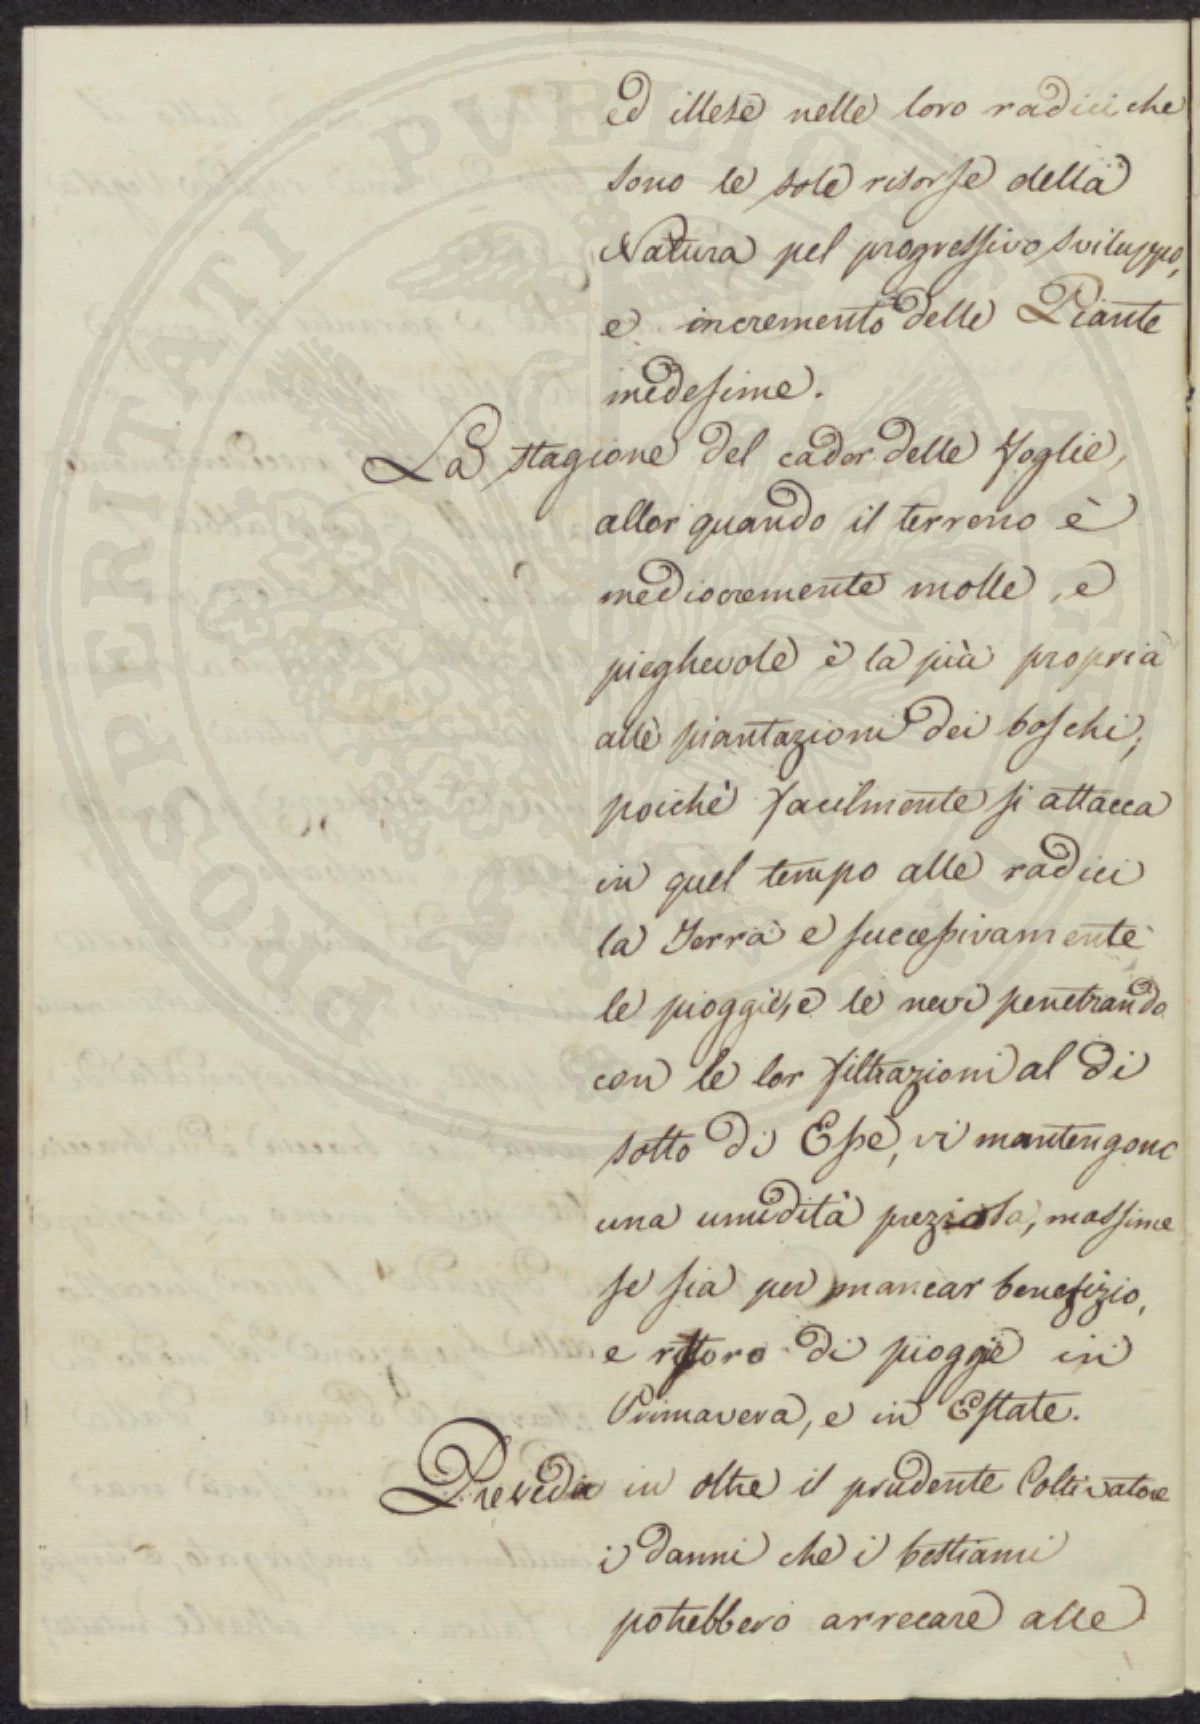 ed illese nelle loro radici che
sono le sole risorse della
Natura pel progressivo sviluppo,
e incremento delle Piante
medesime.
La stagione del cader delle foglie,
allor quando il terreno è
mediocremente molle, e
pieghevole è la più propria
alle piantazioni dei boschi;
poichè facilmente si attacca
in quel tempo alle radici
la Terra e successivamente
le pioggie, e le nevi penetrando
con le lor filtrazioni al di
sotto di Esse, vi mantengono
una umidità preziosa, massime
se sia per mancar benefizio,
e ristoro di pioggie in
Primavera, e in Estate.
Preveda in oltre il prudente Coltivatore
i danni che i bestiami
potrebbero arrecare alle
PROSPERITATI PVBLICAE AVGENDAE